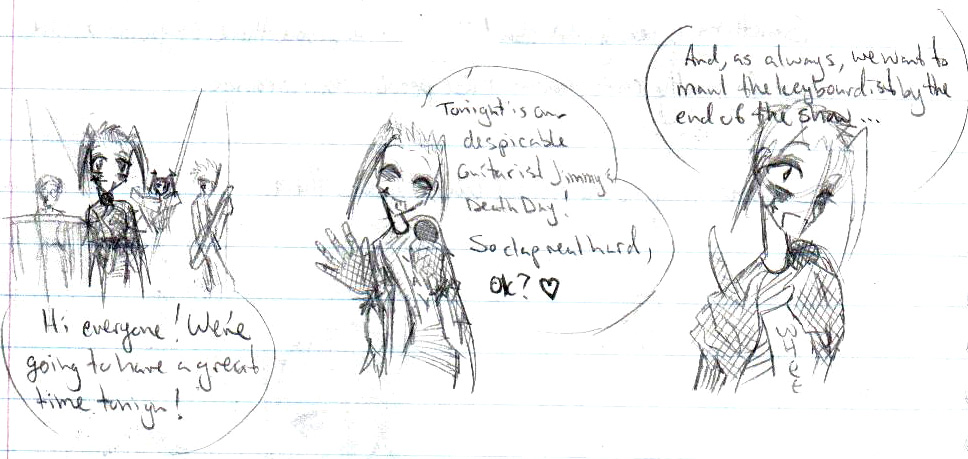 Hi everyone! We're
going to have a great
time tonigh!
Tonight is our
despicable
Guitarist Jimmy's
Death Day!
So clap real hard,
Ok? ♡
And, as always, we want to
maul the keyboardist by the
end of the show...